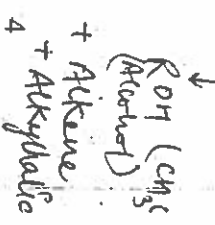 ↓
ROH (CH3C
(Alcohol)
+ Alkene
+ Alkylhalide
4